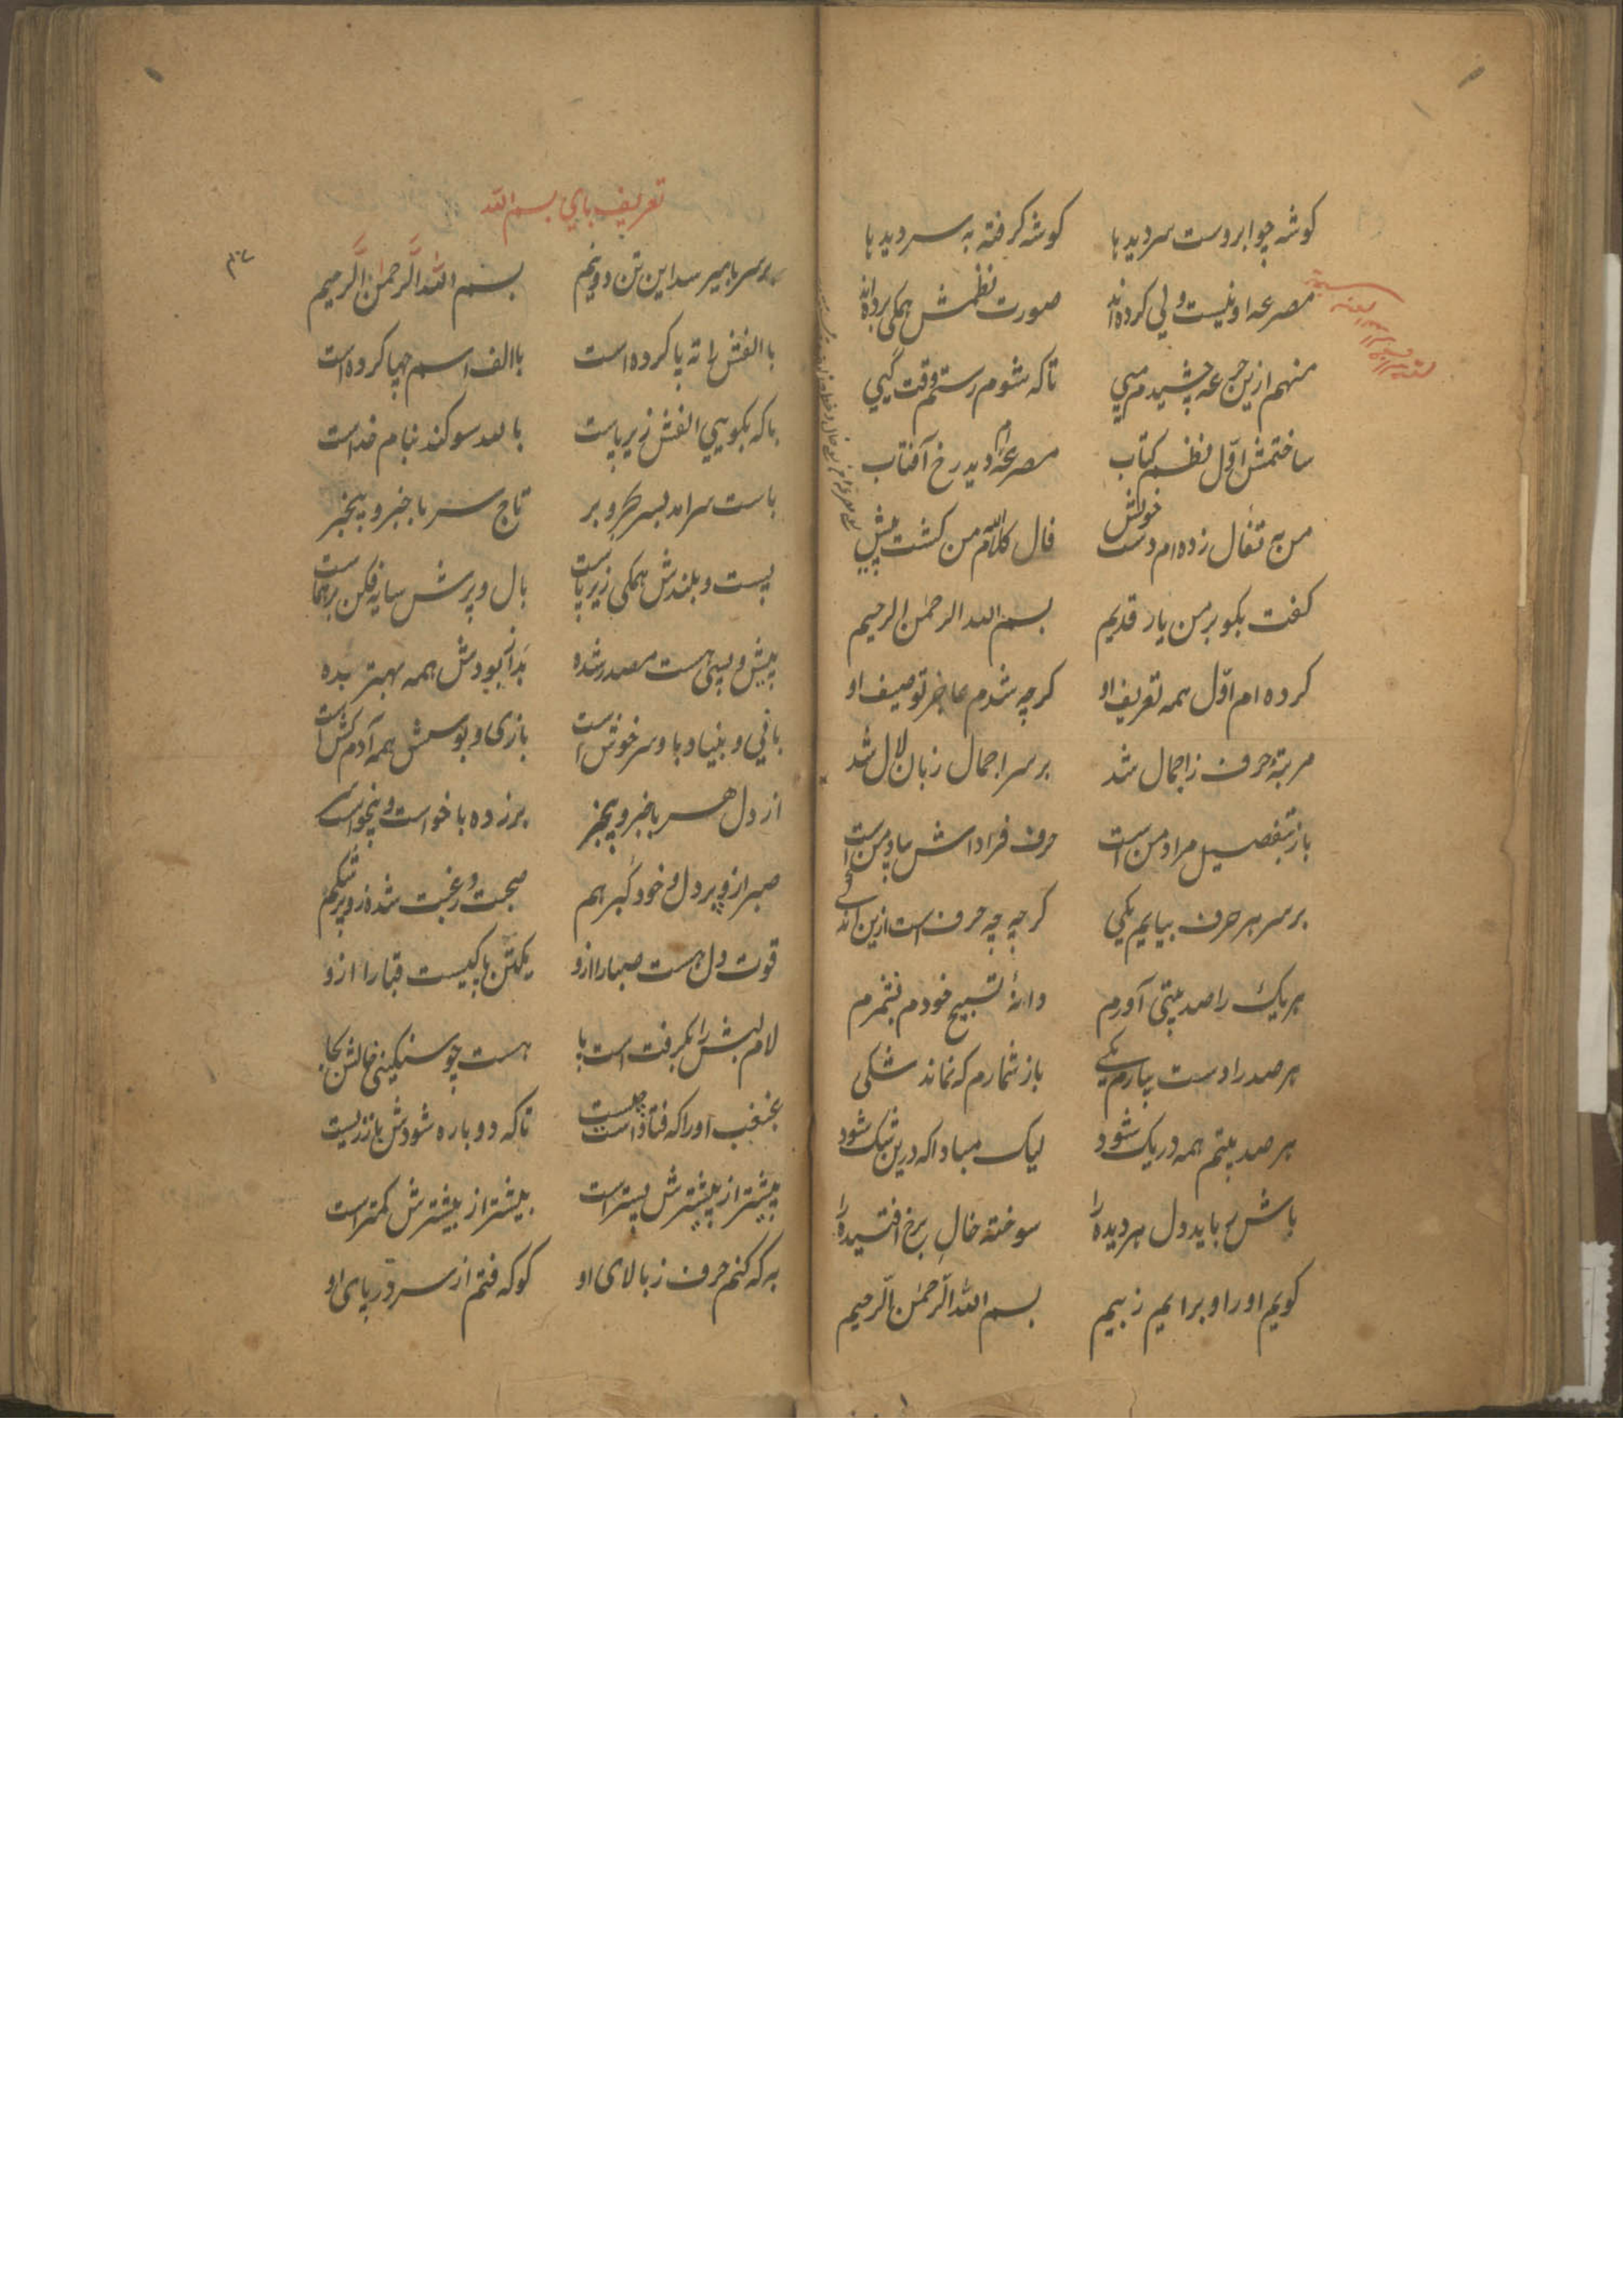 کوشه چو ابروست سر دید با کوشه کرفته به سر دید با
مصرعه او نیست ولی کرده‌اند صورت نظمش همکی برده‌اند
منهم ازین جرعه چشیدم میی تاکه شوم رستم وقت کیی
ساختمش اوّل نظم کتاب مصرعه‌ام دید رخ آفتاب
من به تفأل زده‌ام دست خویش فال کلام الله من کشت پیش
کفت بکو بر من یار قدیم بسم الله الرحمن الرحیم
کرده‌ام اوّل همه تعریف او کرچه شدم عاجز توصیف او
مرتبۀ حرف ز اجمال شد بر سر اجمال زبان لال شد
باز بتفصیل مراد منست حرف فرادا
بر سر هر حرف بیایم یکی کرچه چه حرف است ازین اندکی
هر یک را صد بیتی آورم دانۀ تسبیح خودم بشمرم
هر صد را دست بیارم یکی باز شمارم که نماند شکی
هر صد بیتم همه در یک شود لیک مبادا که درین شک شود
باش رباید دل هر دیده را سوخته خال برخ افتیده را
کویم او را و برایم ز بیم بسم الله الرّحمن الرّحیم
تعریف بای بسم الله
بر سر با میرسد این تن دو نیم بسم الله الرَّحمن الرَّحیم
با الفش را ته پا کرده است با الف اسم چها کرده است
باکه بکویی الفش زیر پاست با لله سوکند بنام خداست
باست سر آمد بسر بحر و بر تاج سر با خبر و بیخبر
پست و بلندش همکی زیر پاست بال و پرش سایه فکن بر هماست
پیش و پسی هست مصدر شده بد از بودش همه بهتر بده
بافی و بنیاد و با و سر خوش است بازی و بوسش همه آدم کش است
از دل هر با خبر و بیخبر برزده با خواست و بیخواست
صبر از و بر دل و خود کبر هم صحبت و رغبت شده زو پر شکم
قوت دل هست صبا را ازو یکتن پاکیست قبا را ازو
لام لبش را بکرفت است با هست چو سنکینی خالش بجا
غبغب او را که فتاد است چیست تاکه دوباره شودش باز زیست
پیشتر از پیشترش پستر است بیشتر از بیشترش کمتر است
به که کنم حرف ز بالای او کو که فتم از سر و در پای او